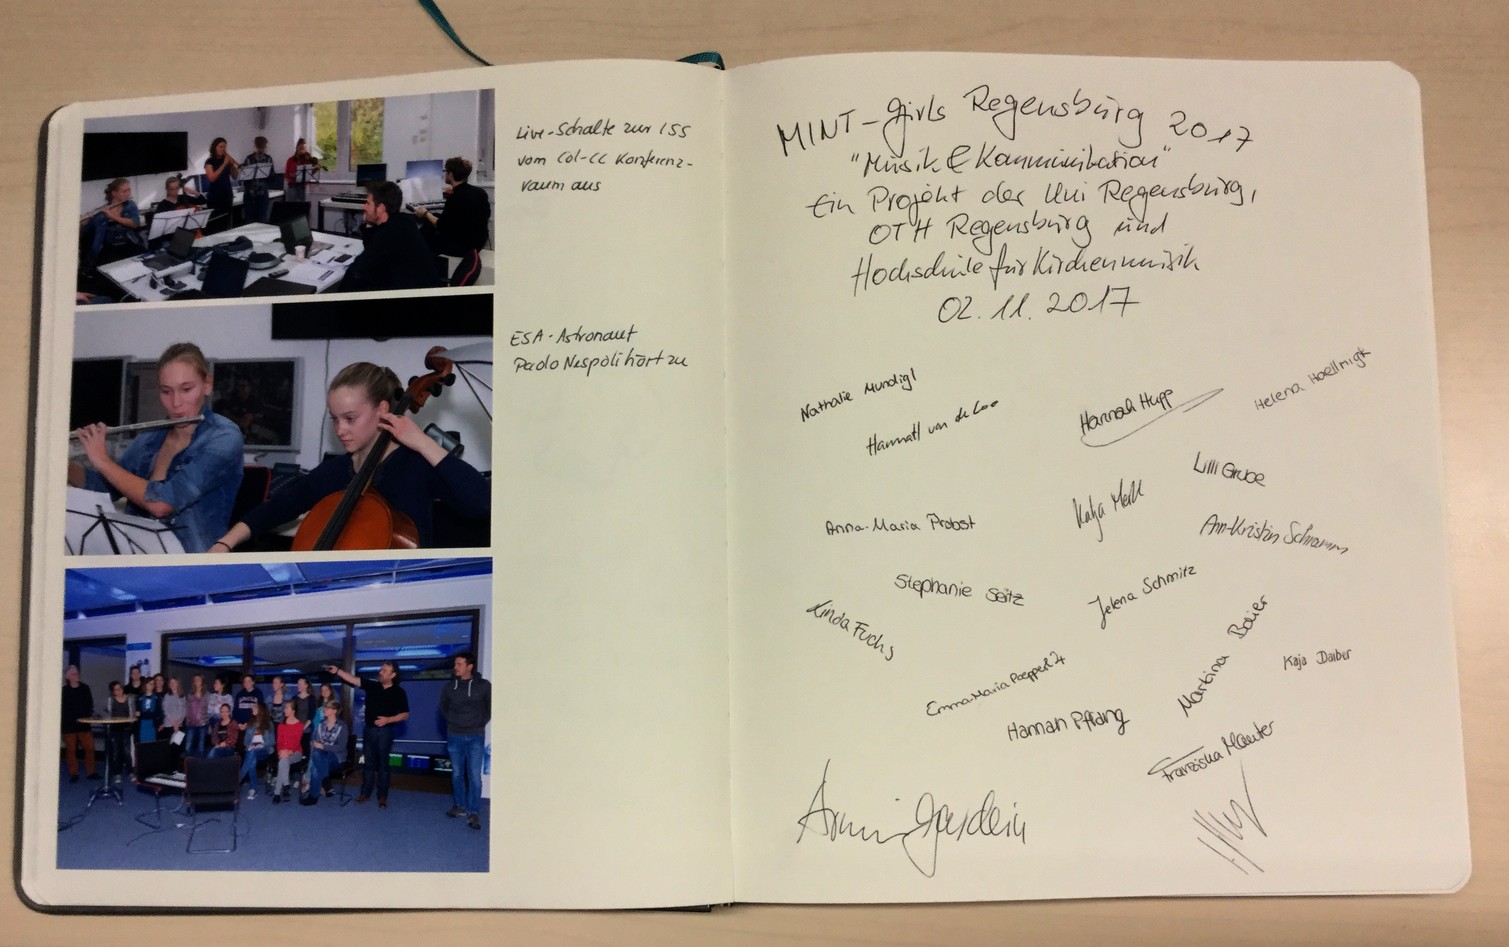 Live-Schalte zur ISS
vom Col-CC Konferenz-
raum aus
ESA-Astronaut
Paolo Nespoli hört zu
MINT-girls Regensburg 2017
"Musik & Kommunikation"
Ein Projekt der Uni Regensburg,
OTH Regensburg und
Hochschule für Kirchenmusik
02.11.2017
Nathalie Mundigl
Hannah van de Loo
Hannah Hupp
Helena Hoellrigl
Lilli Grube
Katja Merkl
Anna-Maria Probst
Ann-Kristin Schramm
Stephanie Seitz
Jelena Schmitz
Linda Fuchs
Martina Baier
Kaja Daiber
Emma-Maria
Hannah Pflang
Franziska
Armin Gardeia